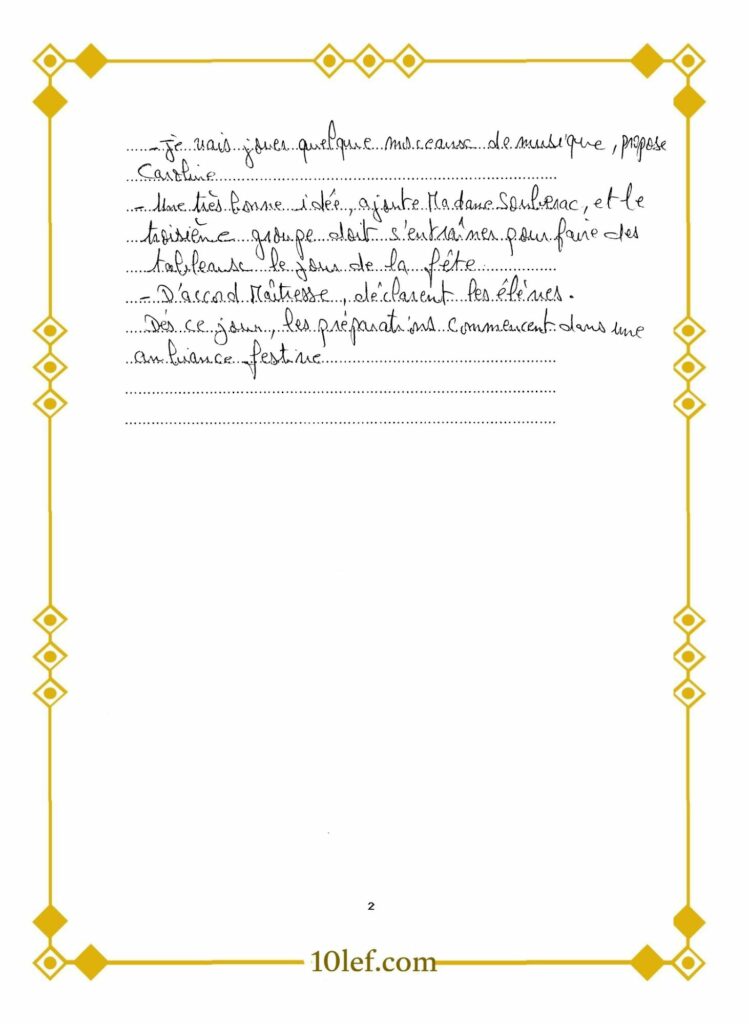 - je vais jouer quelque morceaux de musique, propose
Caroline
- Une très bonne idée, ajoute Madame Soulerac, et le
troisième groupe doit s'entraîner pour faire des
tableaux le jour de la fête
- D'accord Maîtresse, déclarent les élèves.
Dès ce jour, les préparations commencent dans une
ambiance festive
2
10lef.com